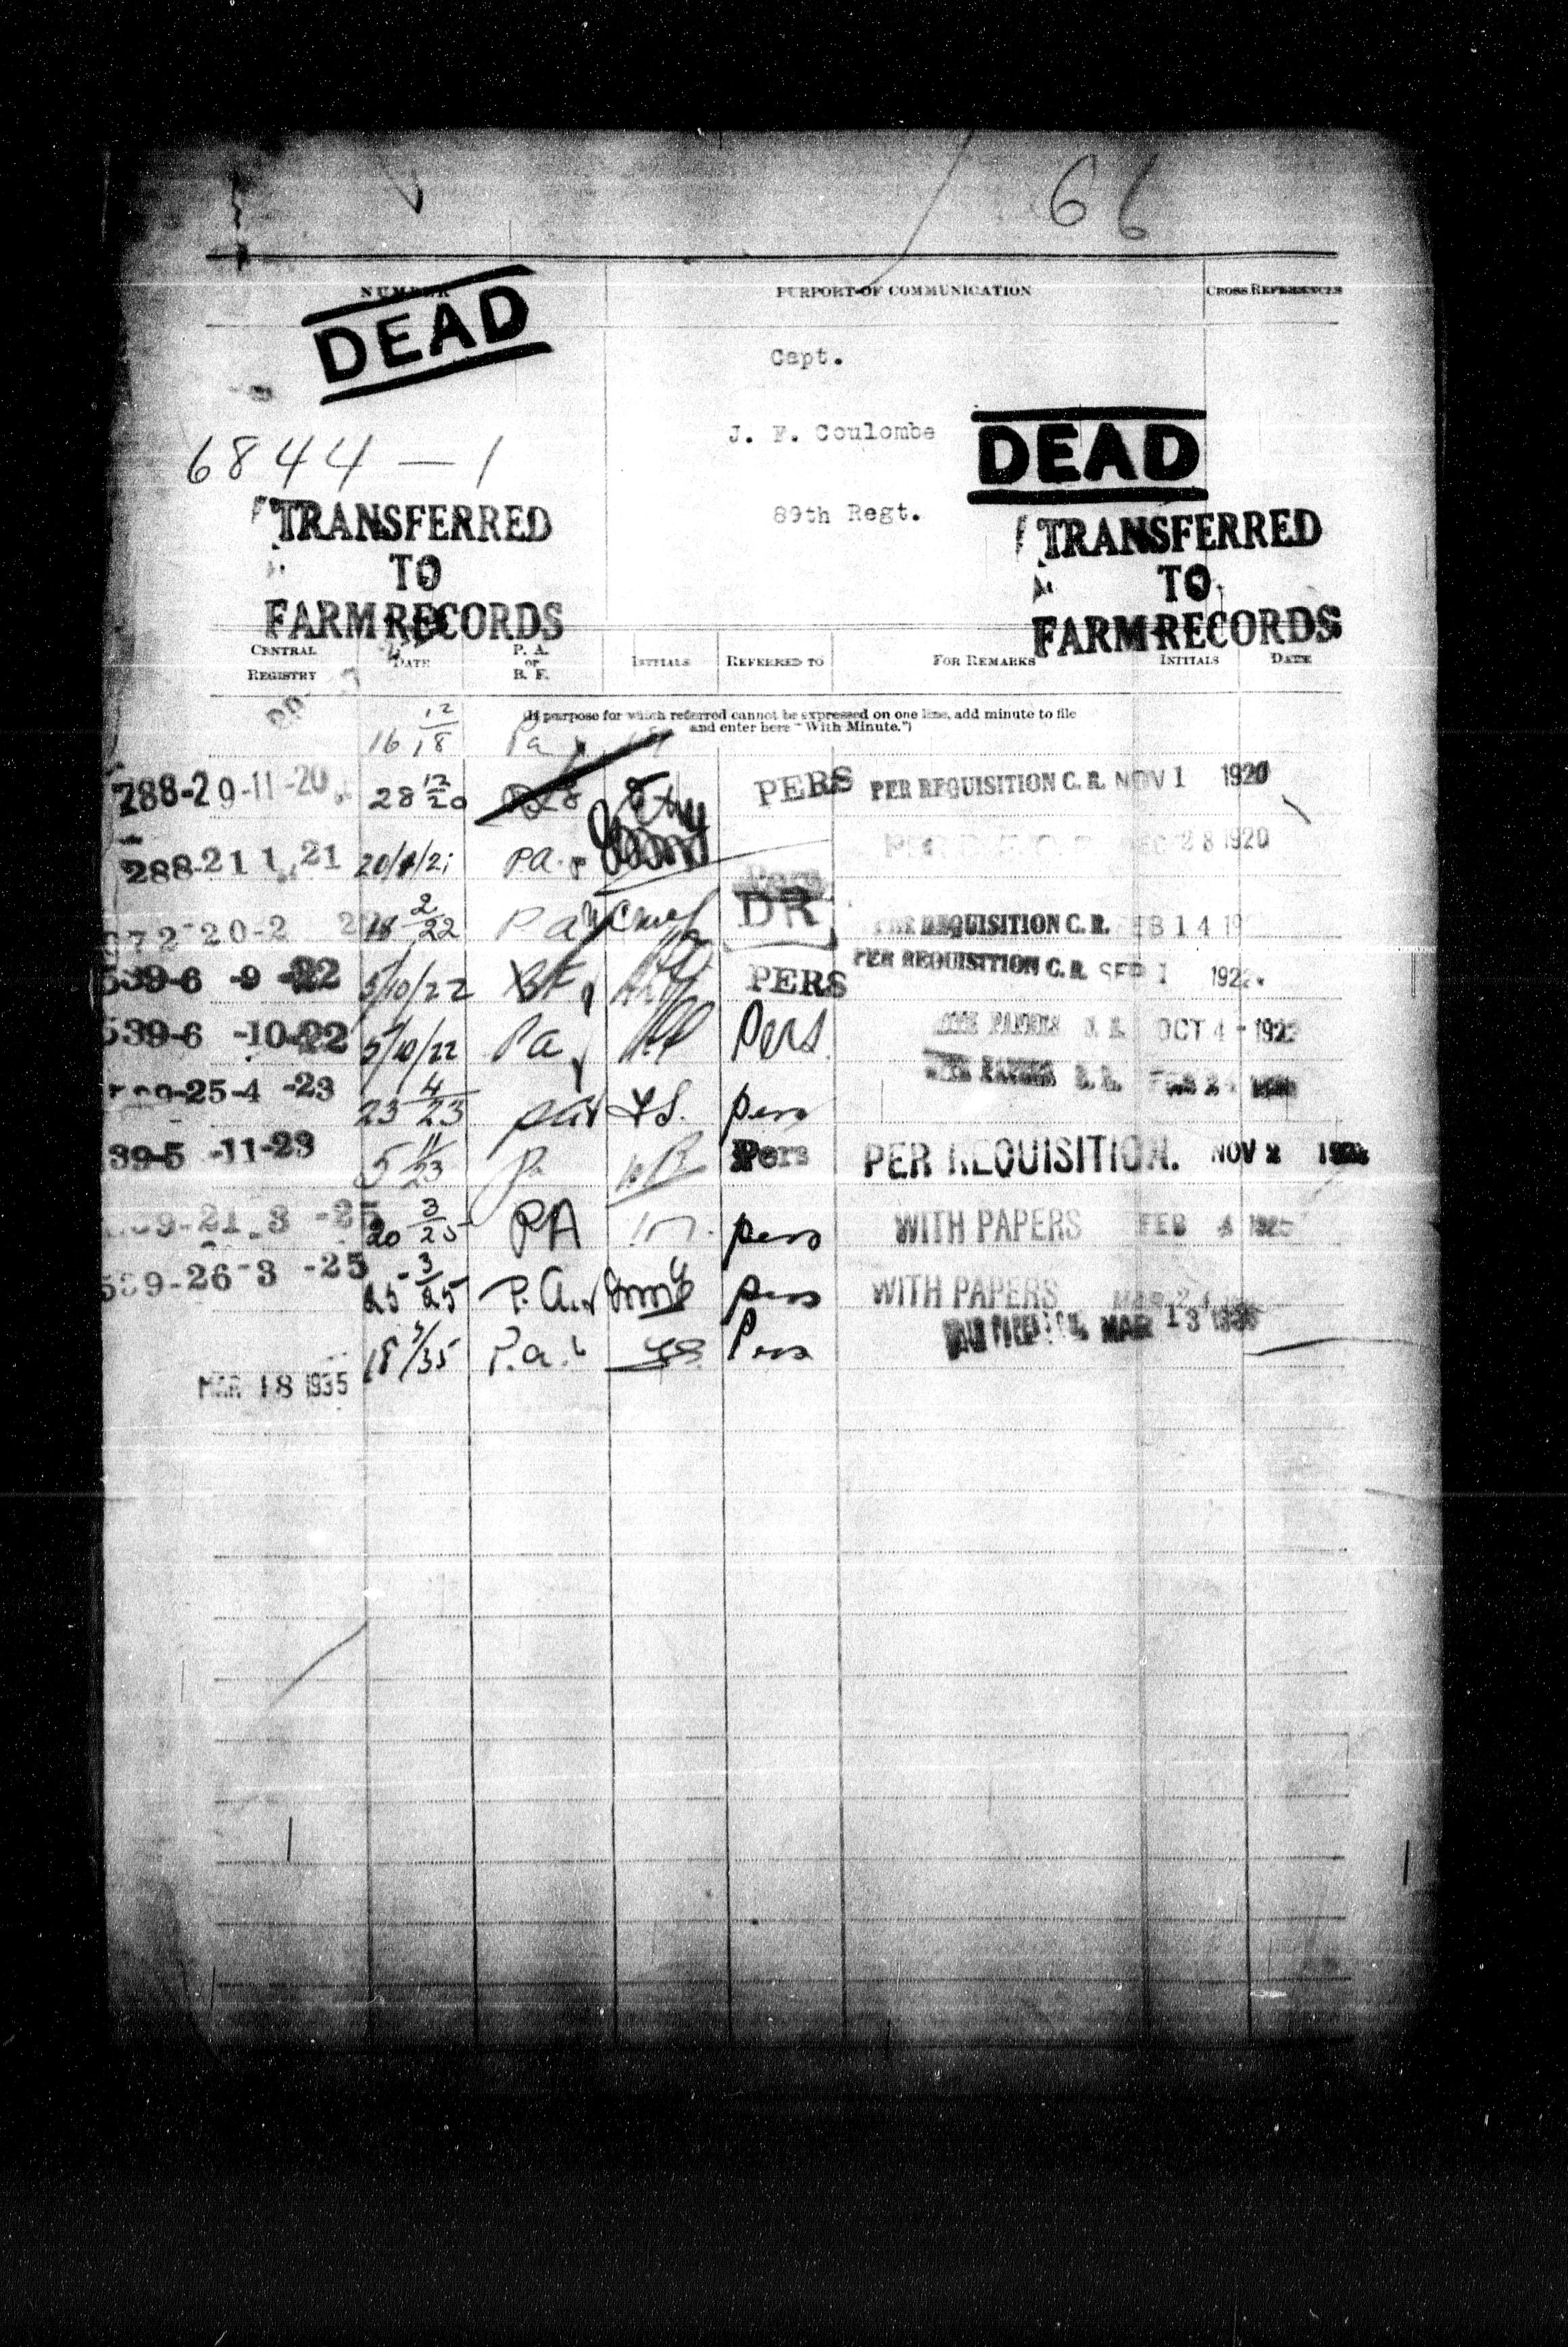 66
NUMBER PURPORT OF COMMUNICATION CROSS REFERENCES
DEAD
Capt.
J. F. Coulombe
DEAD
6844 — 1
89th Regt.
TRANSFERRED
TO
FARM RECORDS
TRANSFERRED
TO
FARM RECORDS
CENTRAL REGISTRY DATE P. A. or B. F. INITIALS REFERRED TO FOR REMARKS INITIALS DATE
(If purpose for which referred cannot be expressed on one line, add minute to file
and enter here "With Minute.")
16 12/18 Pa
288-20-11-20 28 12/20 PERS PER REQUISITION C. R. NOV 1 1920
288-21 1 21 20/1/21 PA. DEC 28 1920
Pers
20-2 18 2/22 Pa DR PER REQUISITION C. R. FEB 14
539-6 -9 -22 5/10/22 BF PERS PER REQUISITION C. R. SEP 1 192
539-6 -10-22 5/10/22 Pa Pers. OCT 4 - 192
-25-4 -23 23 4/23 pa pers
39-5 -11-23 5 11/23 p. Pers PER REQUISITION. NOV 2
39-21-3 -25 20 3/25 PA pers WITH PAPERS FEB 1925
539-26-3 -25 25-3/25 P.A. pers WITH PAPERS MAR 24
18 3/35 P.a. Pers MAR 13 1935
MAR 18 1935